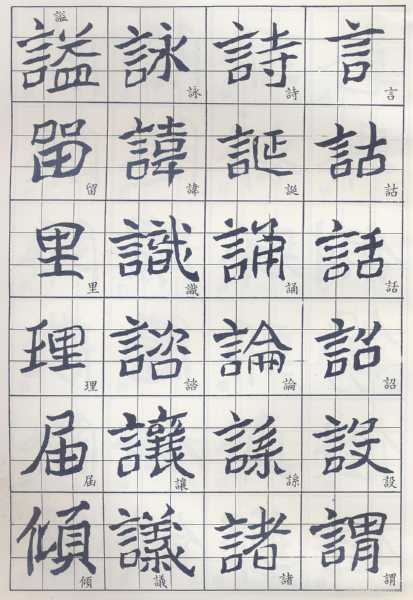 言言詁詁話話詔詔設設謂謂
詩詩誕誕誦誦論論諸諸
詠詠諱諱識識諮諮讓讓議議
謚謚留留里里理理届届傾傾